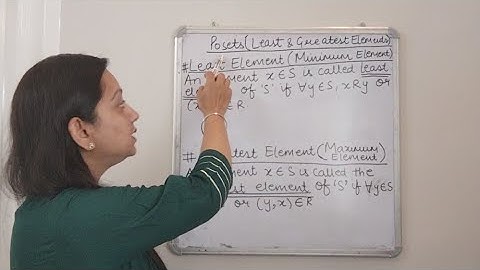 Posets (Least & Greatest Elements)
# Least Element (Minimum Element)
An element x∈S is called least
of 'S' if ∀y∈S, xRy or
∈R
# Greatest Element (Maximum
Element)
An element x∈S is called the
element of 'S' if ∀y∈S
or (y,x)∈R